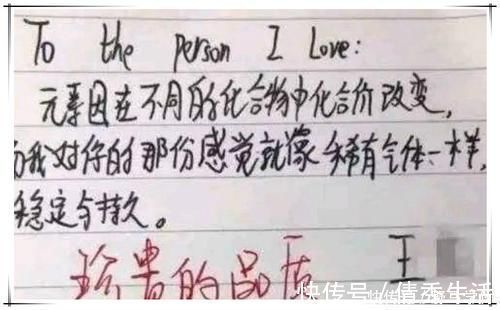 To the person I Love:
元素因在不同的化合物中化合价改变,
我对你的那份感觉就像稀有气体一样,
稳定与持久。
珍贵的品质
王
快传号/倩秀生活